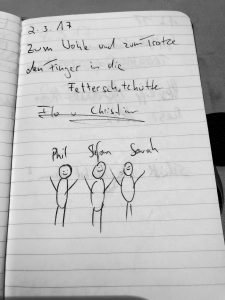 2.3.17
Zum Wohle und zum Trotze
den Finger in die
Fetterschotzhutte
Flo u Christian
Phil Stefan Sarah